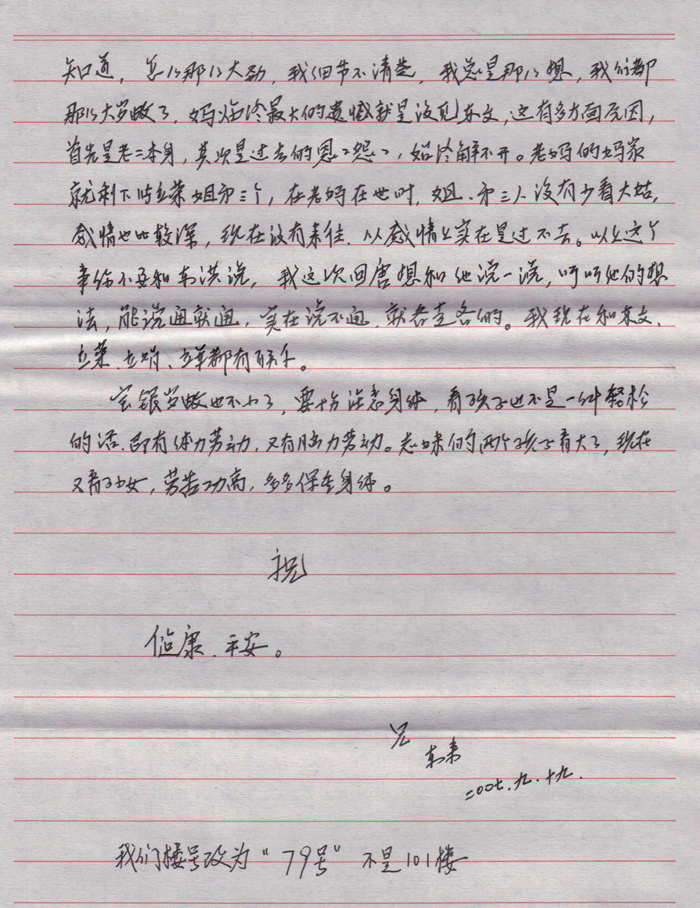 知道，怎么那么大劲，我细节不清楚，我总是那么想，我们都
那么大岁数了，妈临终最大的遗憾就是没见东文，这有多方面原因，
首先是老二本身，其次是过去的恩恩怨怨，始终解不开。老妈的妈家
就剩下姐弟三个，在老妈在世时，姐、弟三人没有少看大姑，
感情也比较深，现在没有来往，从感情上实在是过不去。以上这个
事你不要和东洪说，我这次回唐想和他说一说，听听他的想
法，能说通就通，实在说不通，就各走各的。我现在和东文、
都有联系。
宝银岁数也不小了，要十分注意身体，看孩子也不是一件轻松
的活，即有体力劳动，又有脑力劳动。志妹们的两个孩子看大了，现在
又看孙女，劳苦功高，多多保重身体。
祝
健康、平安。
兄
东来
二00七.九.十九.
我们楼号改为“79号”不是101楼